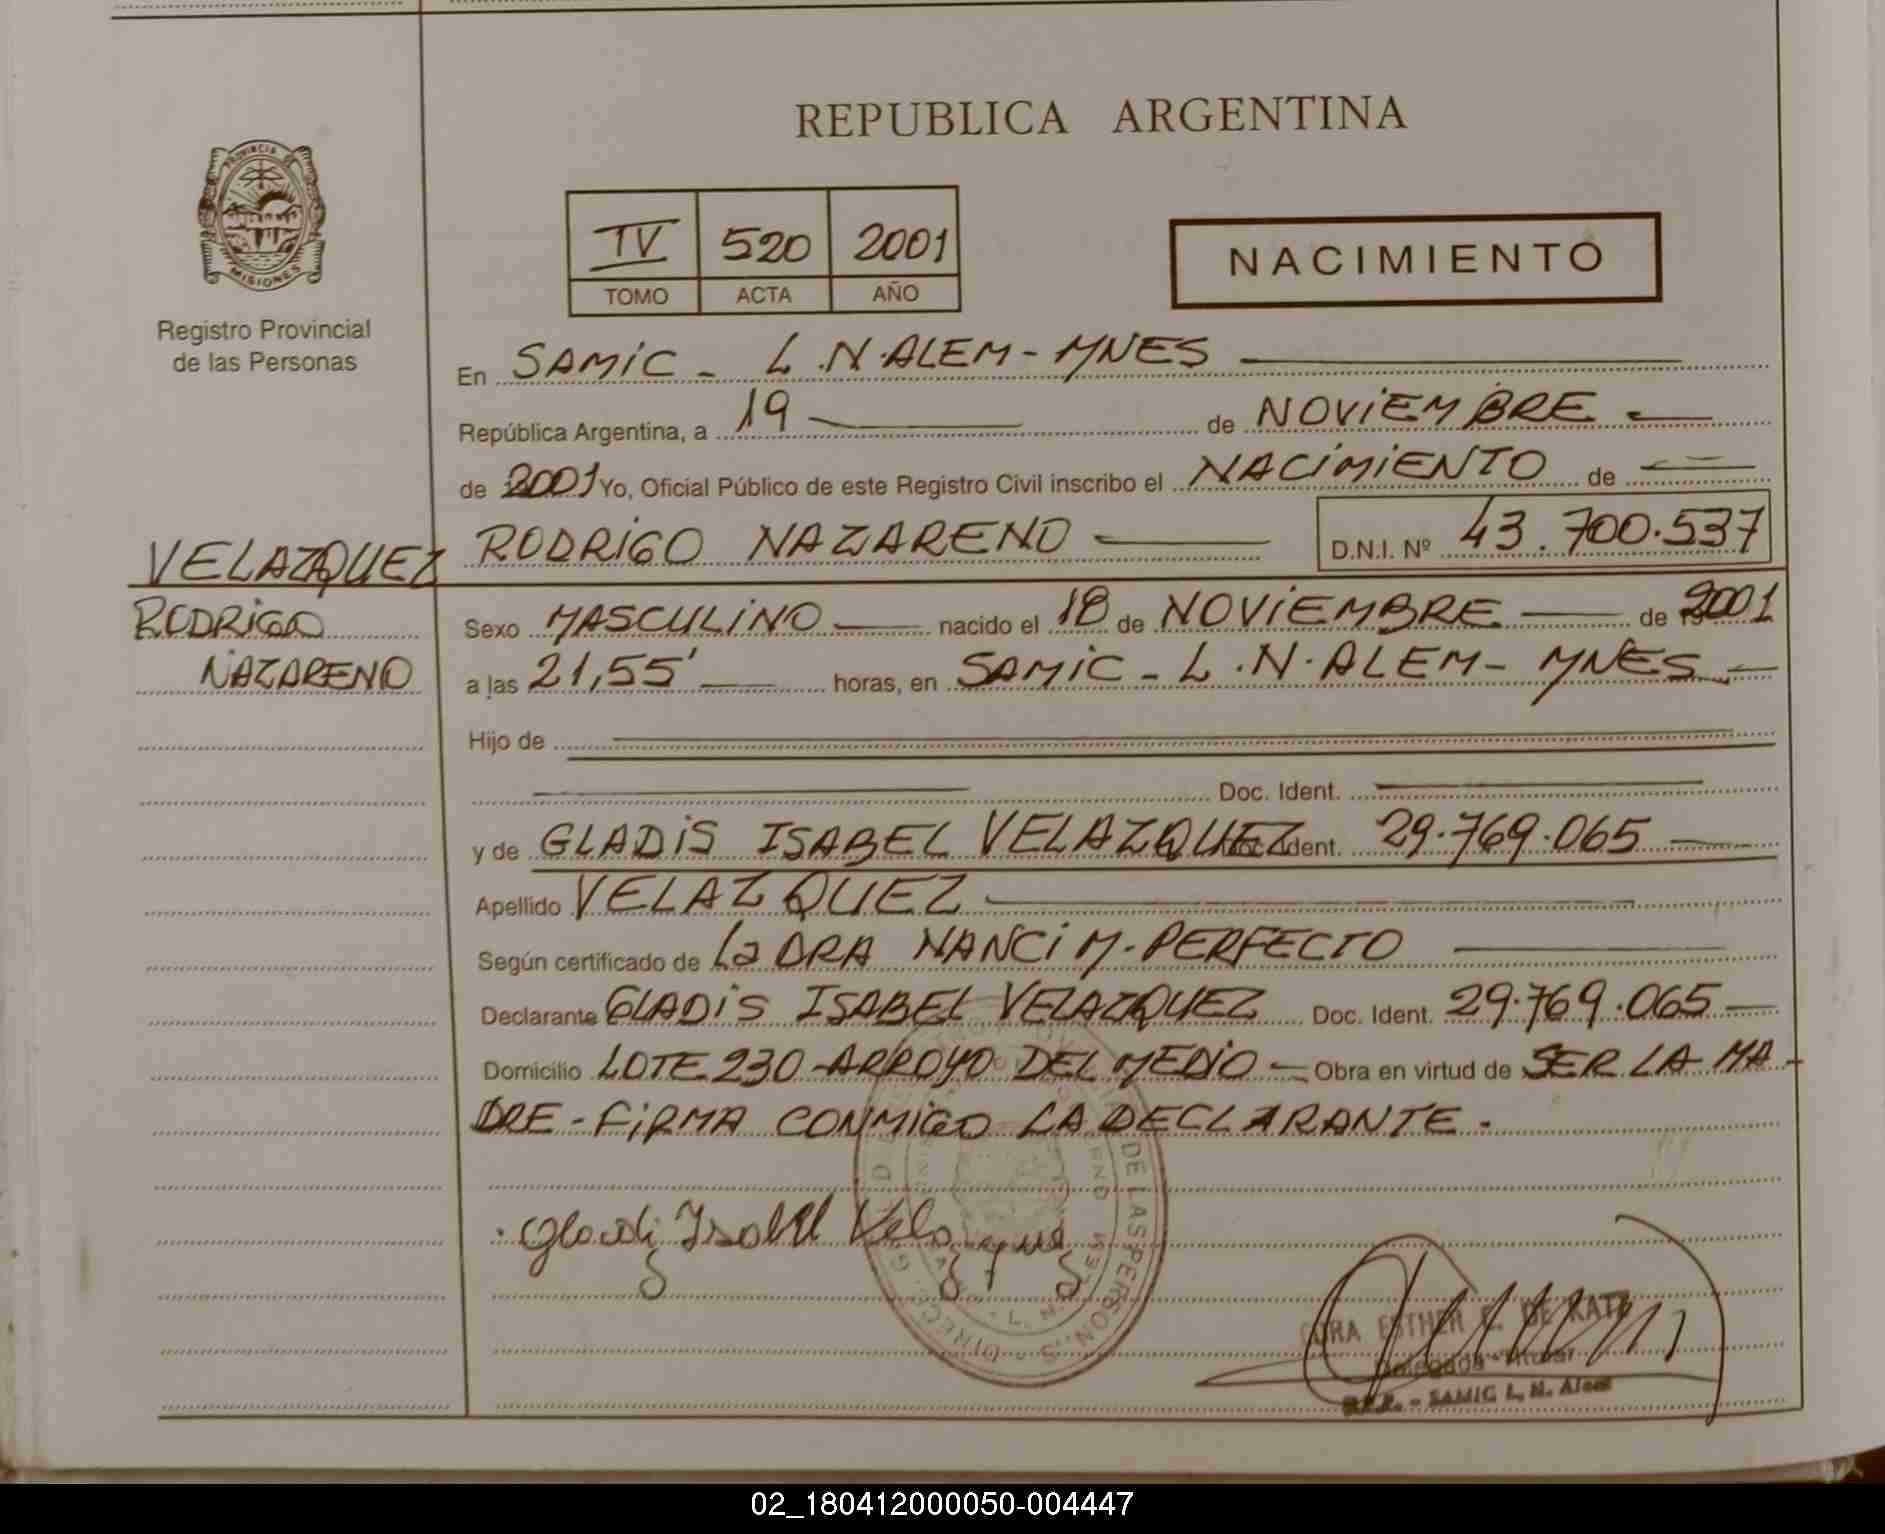 REPUBLICA ARGENTINA
PROVINCIA DE MISIONES
Registro Provincial
de las Personas
IV 520 2001
TOMO ACTA AÑO
NACIMIENTO
En SAMIC - L.N.ALEM - MNES
República Argentina, a 19 de NOVIEMBRE
de 2001 Yo, Oficial Público de este Registro Civil inscribo el NACIMIENTO de
RODRIGO NAZARENO D.N.I. Nº 43.700.537
VELAZQUEZ
RODRIGO
NAZARENO
Sexo MASCULINO nacido el 18 de NOVIEMBRE de 2001
a las 21,55' horas, en SAMIC - L.N.ALEM - MNES
Hijo de
Doc. Ident.
y de GLADIS ISABEL VELAZQUEZ Ident. 29.769.065
Apellido VELAZQUEZ
Según certificado de La DRA NANCI M. PERFECTO
Declarante GLADIS ISABEL VELAZQUEZ Doc. Ident. 29.769.065
Domicilio LOTE 230 - ARROYO DEL MEDIO - Obra en virtud de SER LA MA-
DRE - FIRMA CONMIGO LA DECLARANTE.
Gladis Isabel Velazquez
DE LAS PERSONAS
ESTHER E. DE
Delegada Titular
SAMIC L. N. Alem
02_180412000050-004447